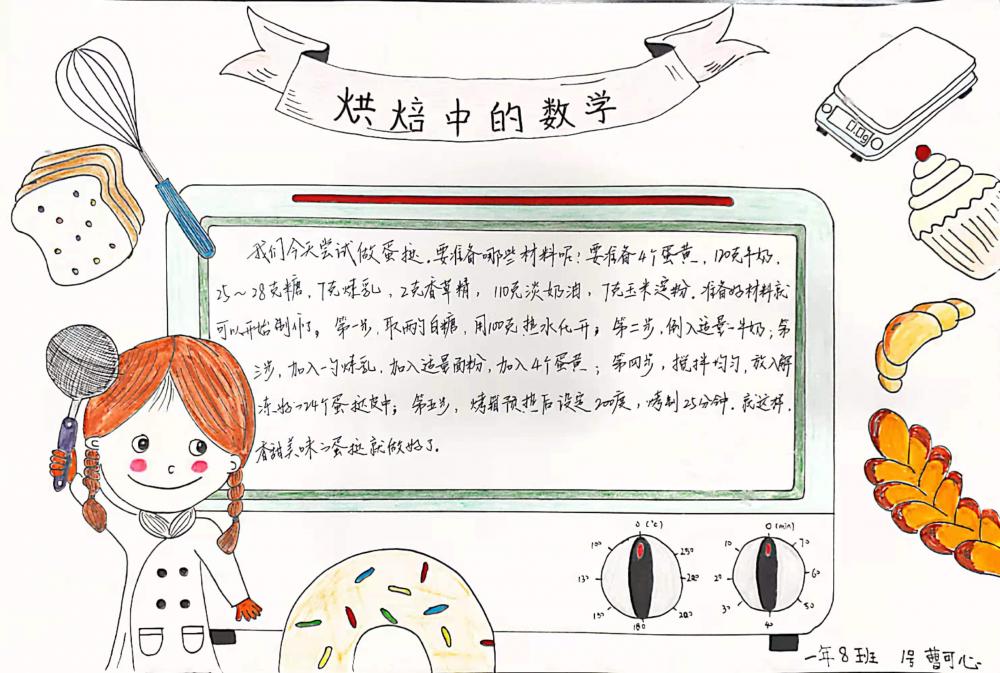 烘焙中的数学
我们今天尝试做蛋挞。要准备哪些材料呢?要准备4个蛋黄,170克牛奶,
25~28克糖,7克炼乳,2克香草精,110克淡奶油,7克玉米淀粉。准备好材料就
可以开始制作了。第一步,取两勺白糖,用100克热水化开;第二步,倒入适量牛奶;第
三步,加入一勺炼乳,加入适量面粉,加入4个蛋黄;第四步,搅拌均匀,放入解
冻好的24个蛋挞皮中;第五步,烤箱预热后设定200度,烤制25分钟。就这样,
香甜美味的蛋挞就做好了。
0.0g
0(℃)
100
250
130
200
150
200
180
0(min)
10
70
20
60
30
50
40
一年8班 1号 曹可心